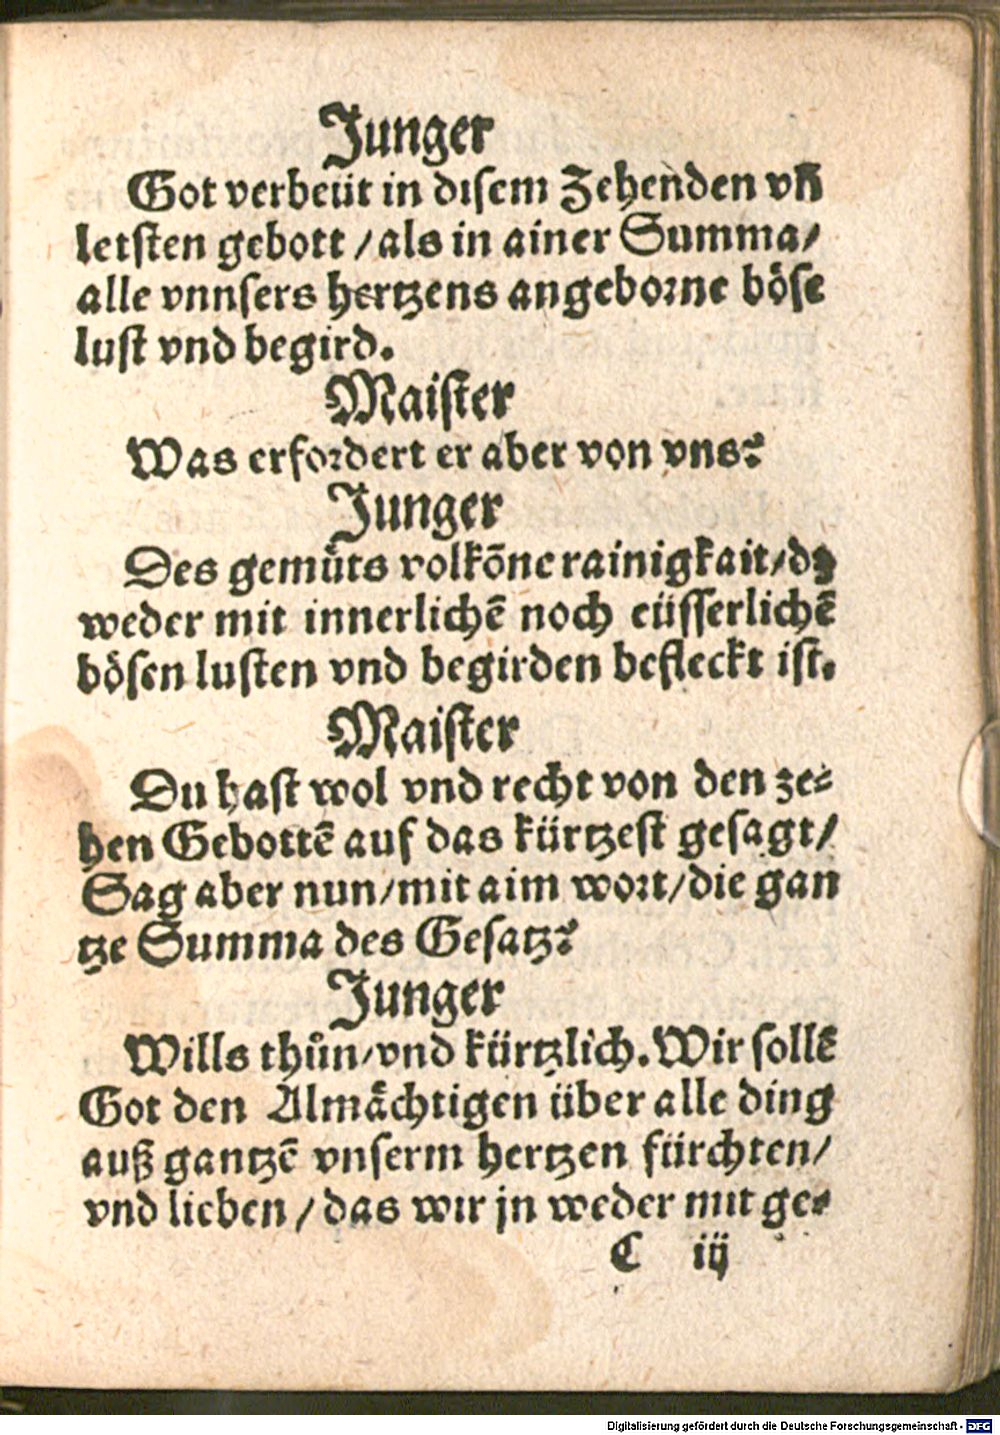 Junger
Got verbeüt in disem Zehenden vñ
letsten gebott / als in ainer Summa /
alle vnnsers hertzens angeborne böse
lust vnd begird.
Maister
Was erfordert er aber von vns?
Junger
Des gemuͤts volkõne rainigkait / dz
weder mit innerlichẽ noch eüsserlichẽ
bösen lusten vnd begirden befleckt ist.
Maister
Du hast wol vnd recht von den ze⸗
hen Gebottẽ auf das kürtzest gesagt /
Sag aber nun / mit aim wort / die gan
tze Summa des Gesatz?
Junger
Wills thuͦn / vnd kürtzlich. Wir sollẽ
Got den Almaͤchtigen über alle ding
auß gantzẽ vnserm hertzen fürchten /
vnd lieben / das wir jn weder mit ge⸗
C iij
Digitalisierung gefördert durch die Deutsche Forschungsgemeinschaft - DFG